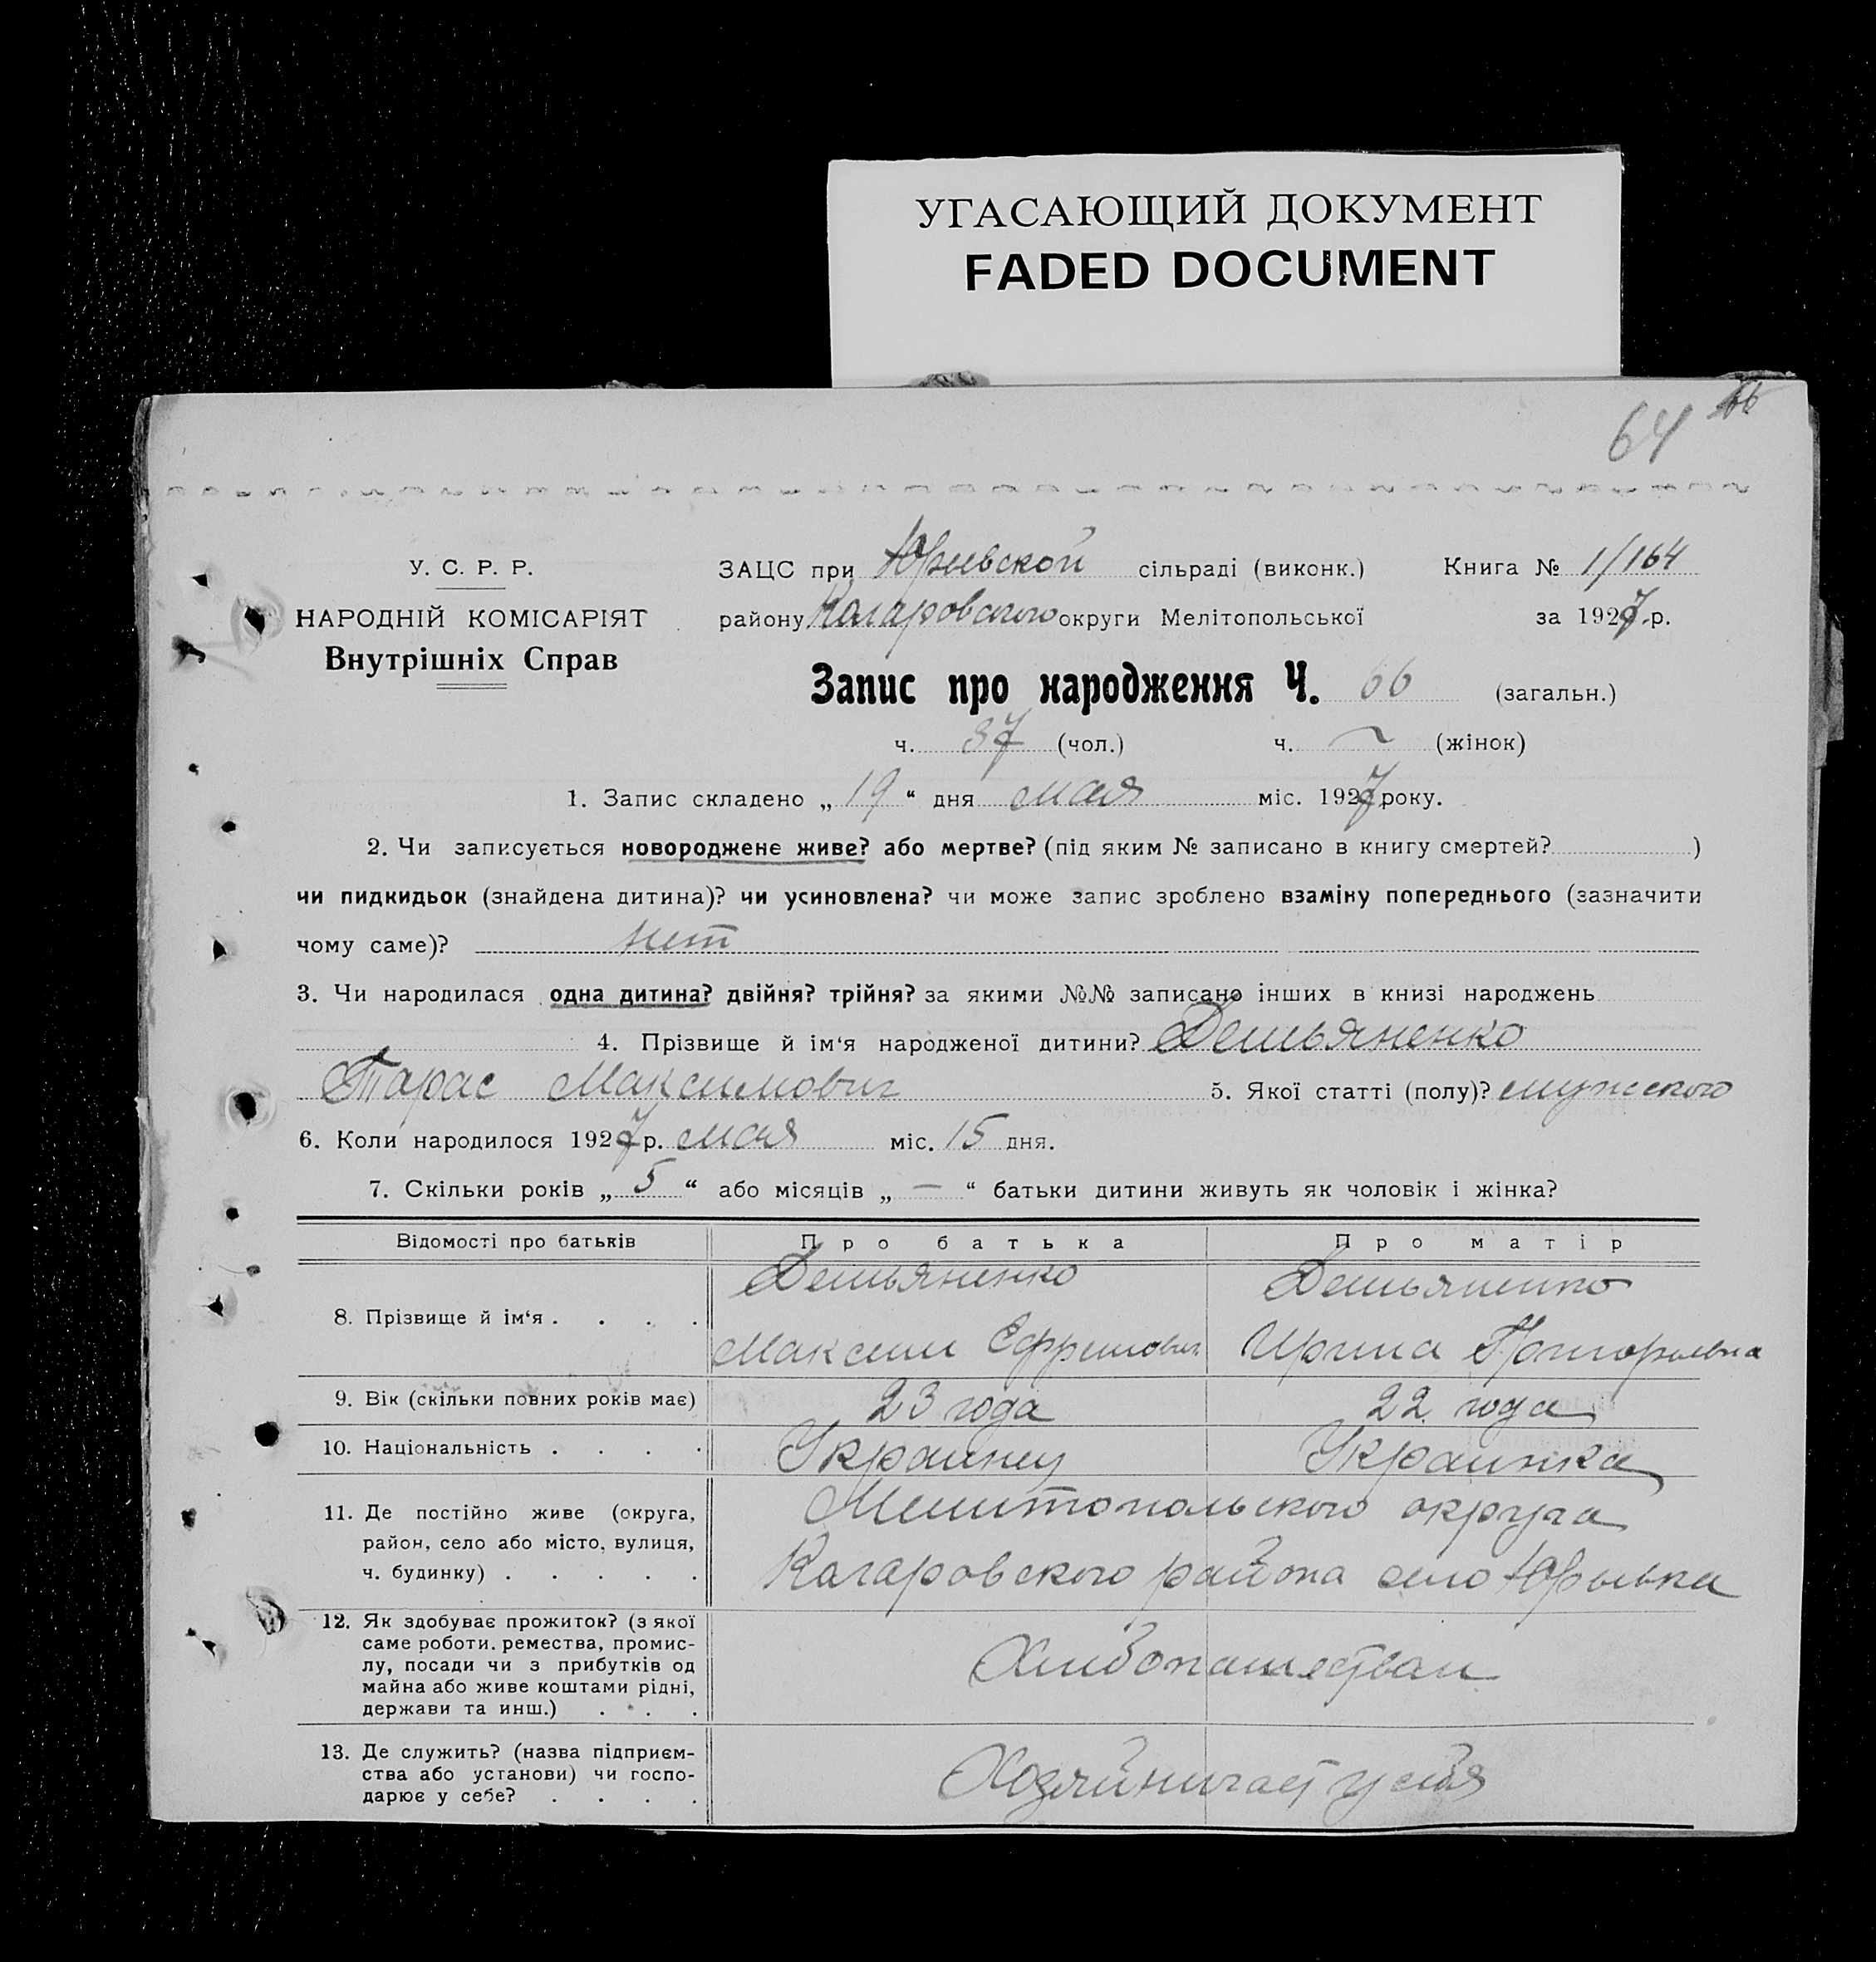 УГАСАЮЩИЙ ДОКУМЕНТ
FADED DOCUMENT
64 66
У. С. Р. Р.
НАРОДНІЙ КОМІСАРІЯТ
Внутрішніх Справ
ЗАЦС при Юрьевской сільраді (виконк.) Книга № 1/164
району Кагаровского округи Мелітопольської за 1927 р.
Запис про народження Ч. 66 (загальн.)
ч. 37 (чол.) ч. ~ (жінок)
1. Запис складено „ 19 “ дня мая міс. 1927 року.
2. Чи записується новороджене живе? або мертве? (під яким № записано в книгу смертей? )
чи пидкидьок (знайдена дитина)? чи усиновлена? чи може запис зроблено взаміну попереднього (зазначити
чому саме)? нет
3. Чи народилася одна дитина? двійня? трійня? за якими №№ записано інших в книзі народжень
4. Прізвище й ім‘я народженої дитини? Демьяненко
Тарас Максимович 5. Якої статті (полу)? мужского
6. Коли народилося 1927 р. мая міс. 15 дня.
7. Скільки років „ 5 “ або місяців „ — “ батьки дитини живуть як чоловік і жінка?
Відомості про батьків Про батька Про матір
8. Прізвище й ім‘я . . . .
Демьяненко
Максим Ефремович
Демьяненко
Ирина Григорьевна
9. Вік (скільки повних років має) 23 года 22 года
10. Національність . . . . Украинец Украинка
11. Де постійно живе (округа,
район, село або місто, вулиця,
ч. будинку) . . . . .
Мелитопольского округа
Кагаровского района село Юрьевка
12. Як здобуває прожиток? (з якої
саме роботи. ремества, промис-
лу, посади чи з прибутків од
майна або живе коштами рідні,
держави та инш.) . . .
Хлебопашеством
13. Де служить? (назва підприєм-
ства або установи) чи госпо-
дарює у себе? . . . .
Хозяйничает у себя